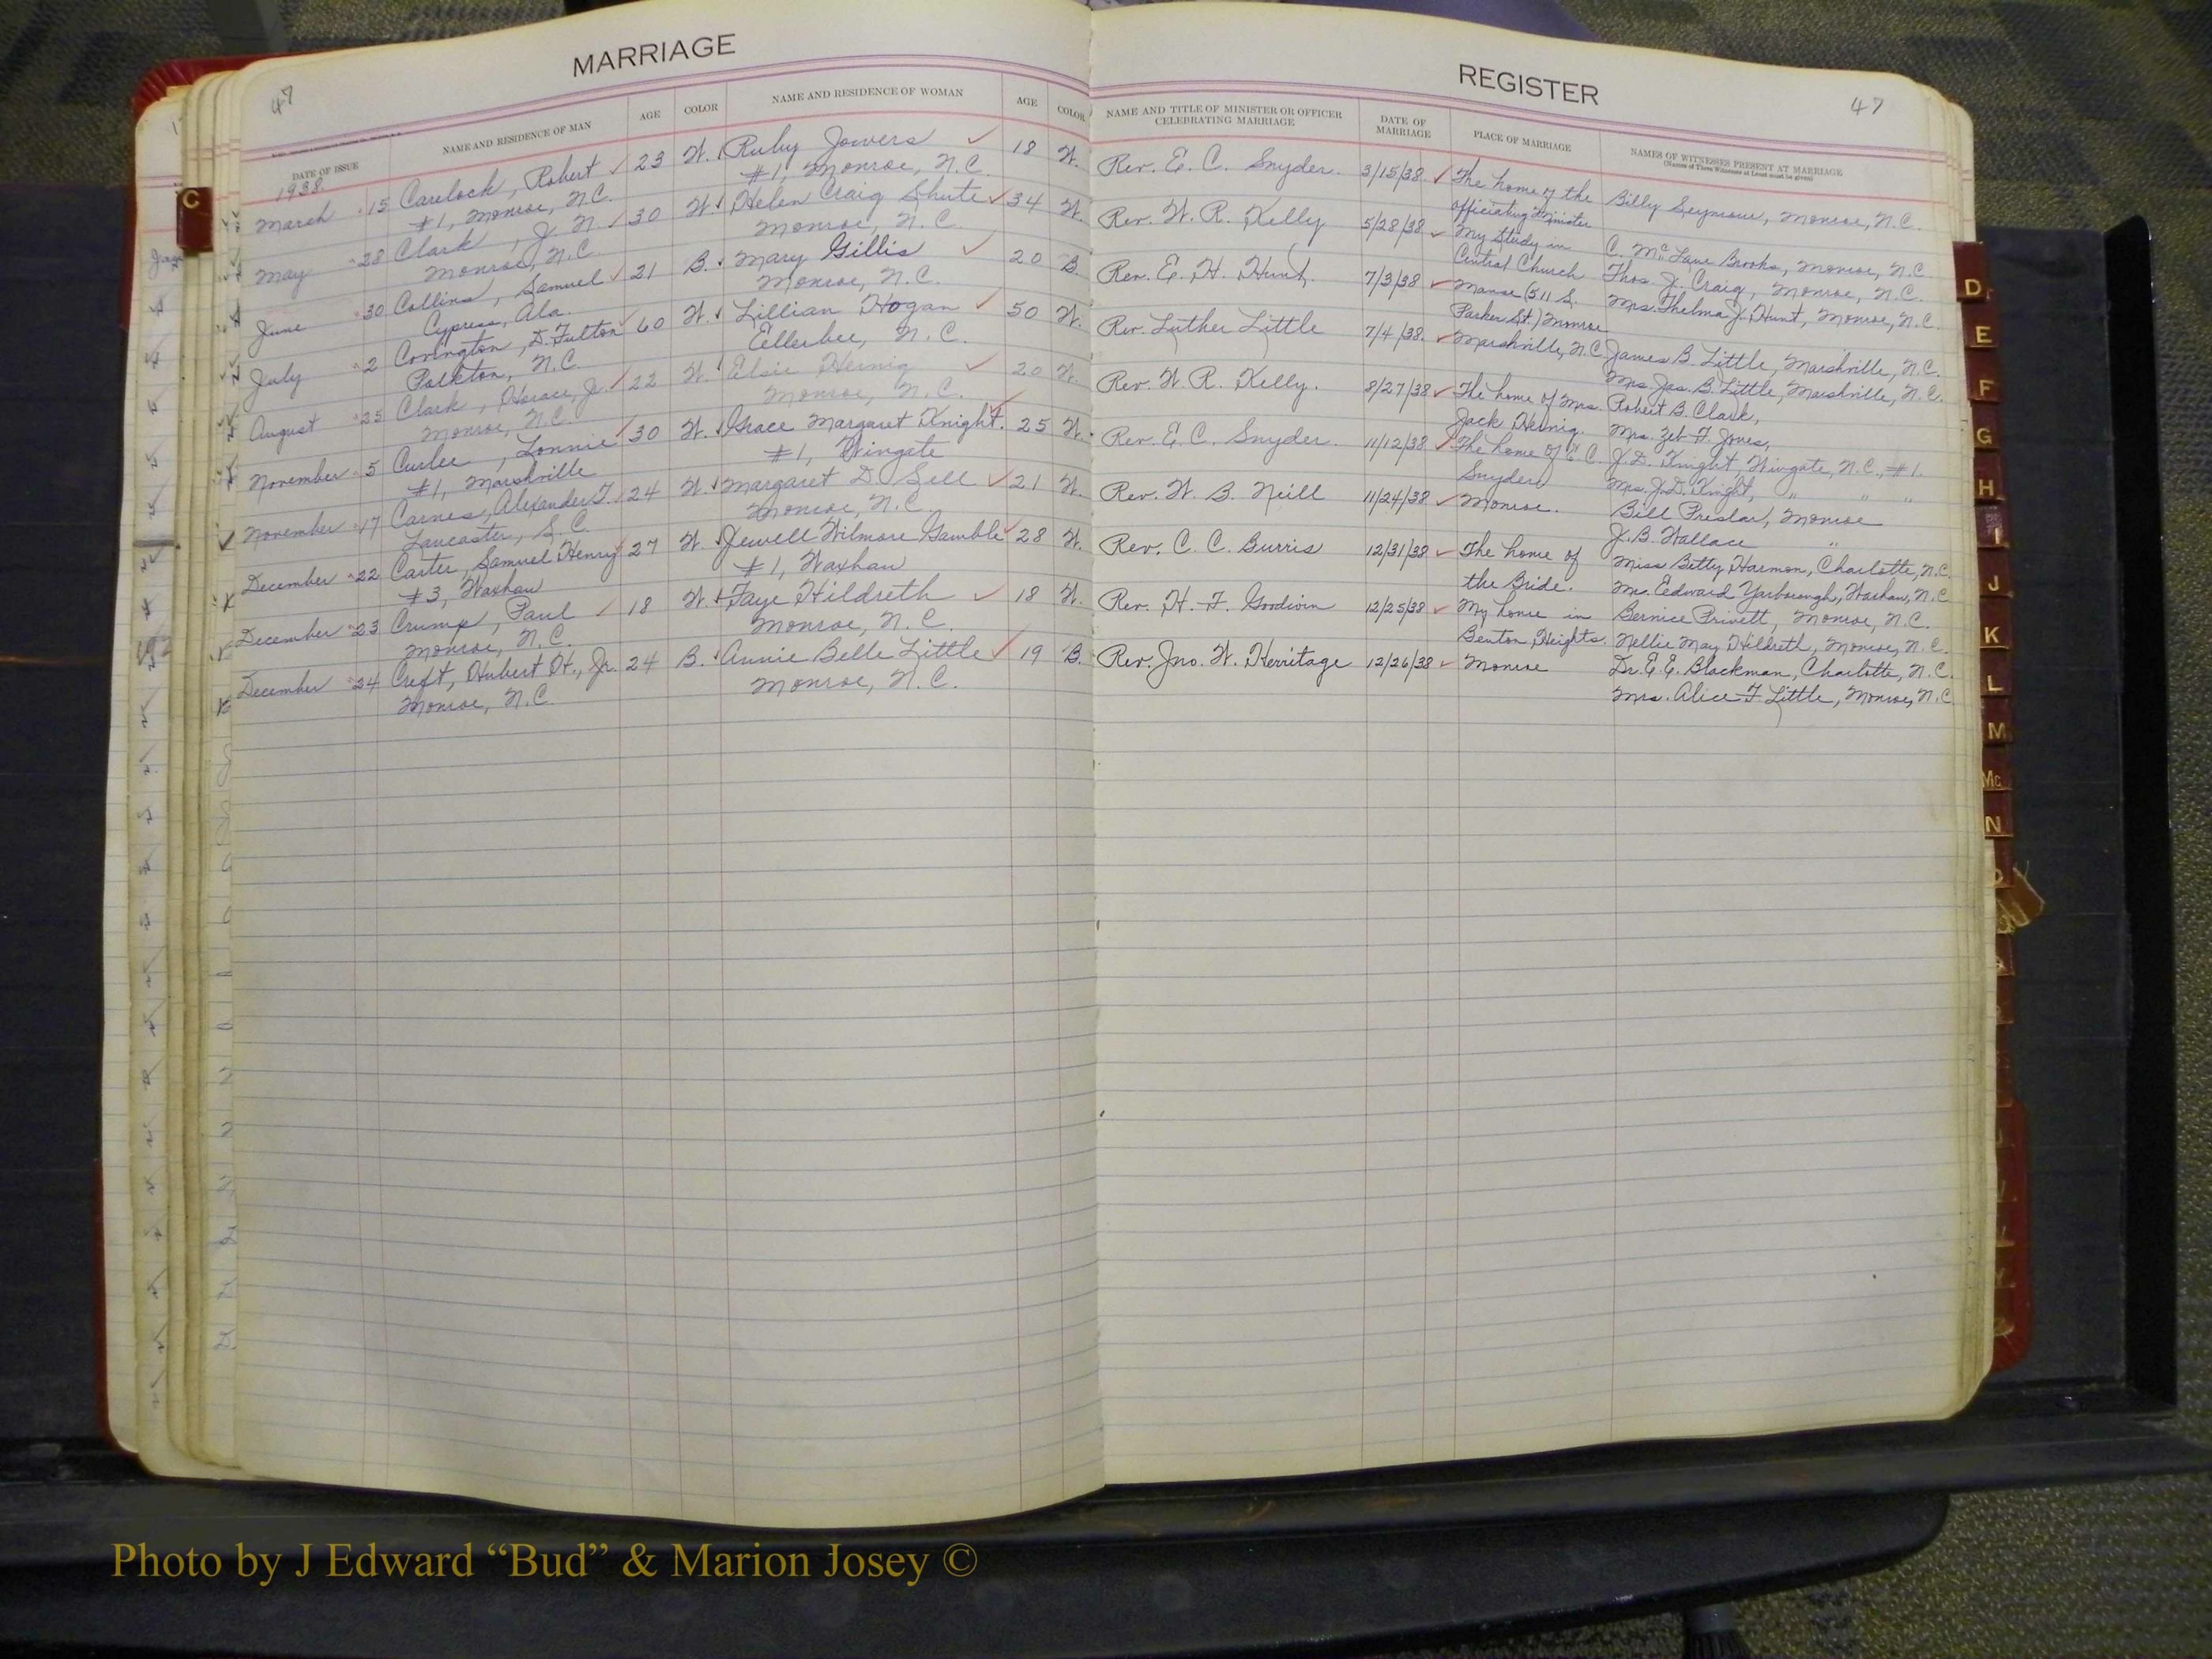 MARRIAGE
47
DATE OF ISSUE
NAME AND RESIDENCE OF MAN
AGE
COLOR
NAME AND RESIDENCE OF WOMAN
AGE
COLOR
1938
March 15 Carelock, Robert 23 W. Ruby Jowers 18 W.
#1, Monroe, N.C. #1, Monroe, N.C.
May 28 Clark, J. N. 30 W. Helen Craig Shute 34 W.
Monroe, N.C. Monroe, N.C.
June 30 Collins, Samuel 21 B. Mary Gillis 20 B.
Cypress, Ala. Monroe, N.C.
July 2 Covington, D. Fulton 60 W. Lillian Hogan 50 W.
Polkton, N.C. Ellerbee, N.C.
August 25 Clark, Horace, Jr. 22 W. Elsie Hernig 20 W.
Monroe, N.C. Monroe, N.C.
November 5 Curlee, Lonnie 30 W. Grace Margaret Knight 25 W.
#1, Marshville #1, Wingate
November 17 Carnes, Alexander F. 24 W. Margaret D. Sell 21 W.
Lancaster, S.C. Monroe, N.C.
December 22 Carter, Samuel Henry 27 W. Jewell Wilmore Gamble 28 W.
#3, Waxhaw #1, Waxhaw
December 23 Crump, Paul 18 W. Faye Hildreth 18 W.
Monroe, N.C. Monroe, N.C.
December 24 Creft, Hubert H., Jr. 24 B. Annie Belle Little 19 B.
Monroe, N.C. Monroe, N.C.
REGISTER
47
NAME AND TITLE OF MINISTER OR OFFICER
CELEBRATING MARRIAGE
DATE OF
MARRIAGE
PLACE OF MARRIAGE
NAMES OF WITNESSES PRESENT AT MARRIAGE
(Names of Three Witnesses at Least must be given)
Rev. E. C. Snyder. 3/15/38 The home of the Billy Seymour, Monroe, N.C.
officiating Minister
Rev. W. R. Kelly 5/28/38 My Study in C. McLane Brooks, Monroe, N.C.
Central Church Thos. J. Craig, Monroe, N.C.
Rev. E. H. Hunt, 7/3/38 Manse (511 S. Mrs. Thelma J. Hunt, Monroe, N.C.
Parker St.) Monroe
Rev. Luther Little 7/4/38. Marshville, N.C. James B. Little, Marshville, N.C.
Mrs. Jas. B. Little, Marshville, N.C.
Rev. W. R. Kelly. 8/27/38 The home of Mrs. Robert B. Clark,
Jack Hernig. Mrs. Zeb F. Jones,
Rev. E. C. Snyder. 11/12/38 The home of E. C. J. D. Knight, Wingate, N.C., #1.
Snyder Mrs. J. D. Knight, " " "
Rev. W. B. Neill 11/24/38 Monroe. Bill Preslar, Monroe
J. B. Wallace "
Rev. C. C. Burris 12/31/38 The home of Miss Betty Harmon, Charlotte, N.C.
the Bride. Mrs. Edward Yarborough, Waxhaw, N.C.
Rev. H. F. Goodwin 12/25/38 My home in Bernice Privett, Monroe, N.C.
Benton Heights. Nellie May Hildreth, Monroe, N.C.
Rev. Jno. W. Herritage 12/26/38 Monroe Dr. E. E. Blackman, Charlotte, N.C.
Mrs. Alice F. Little, Monroe, N.C.
C
D
E
F
G
H
I
J
K
L
M
Mc
N
Photo by J Edward “Bud” & Marion Josey ©